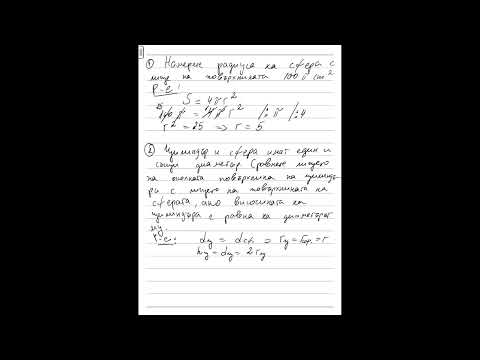 ① Намерете радиуса на сфера с
лице на повърхнината 100 π cm²
Р-е:
S = 4πr²
100 π = 4π r² /:π /:4
r² = 25 ⇒ r = 5
② Цилиндър и сфера имат един и
същи диаметър. Сравнете лицето
на околната повърхнина на цилиндъ
ра с лицето на повърхнината на
сферата, ако височината на
цилиндъра е равна на диаметъра
му.
Р-е: dц = dсф. ⇒ rц = rсф. = r
hц = dц = 2rц